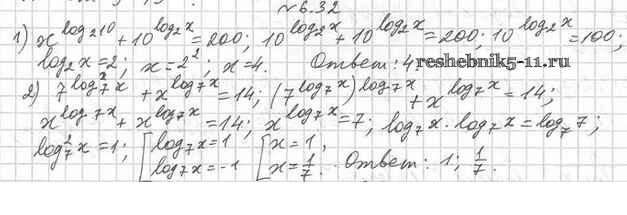 №6.32
1) x^{log_2 10} + 10^{log_2 x} = 200; 10^{log_2 x} + 10^{log_2 x} = 200; 10^{log_2 x} = 100;
log_2 x = 2; x = 2^2; x = 4. Ответ: 4.
reshebnik5-11.ru
2) 7^{log_7^2 x} + x^{log_7 x} = 14; (7^{log_7 x})^{log_7 x} + x^{log_7 x} = 14;
x^{log_7 x} + x^{log_7 x} = 14; x^{log_7 x} = 7; log_7 x · log_7 x = log_7 7;
log_7^2 x = 1; [log_7 x = 1 log_7 x = -1 [x = 1, x = 1/7. Ответ: 1; 1/7.